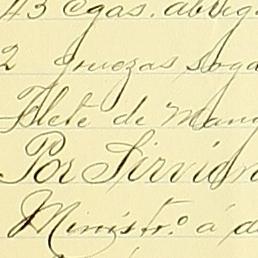 43 Cgas. abrig
2 gruezas soga
Flete de Mang
Por Sirvien
Minist.º á d